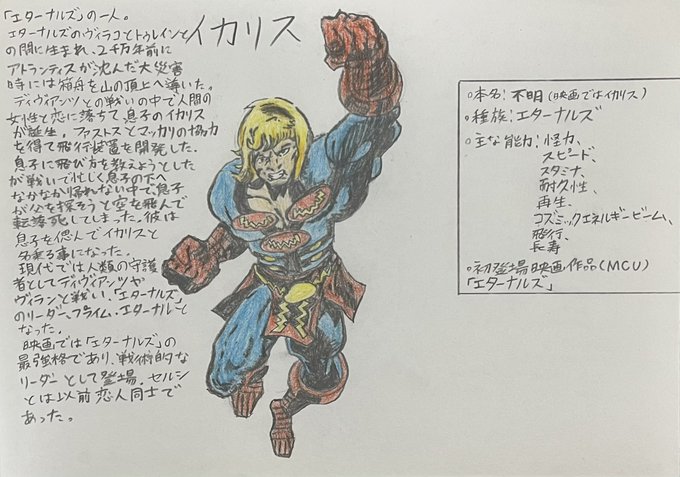 イカリス
「エターナルズ」の一人。
エターナルズのヴィラコとトゥレインと
の間に生まれ、2千万年前に
アトランティスが沈んだ大災害
時には箱舟を山の頂上へ導いた。
ディヴィアンツとの戦いの中で人間の
女性と恋に落ちて、息子のイカリス
が誕生。ファストスとマッカリの協力
を得て飛行装置を開発した。
息子に飛び方を教えようとした
が戦いで忙しく息子の下へ
なかなか帰れない中で息子
が父を探そうと空を飛んで
転落死してしまった。彼は
息子を偲んでイカリスと
名乗る事になった。
現代では人類の守護
者としてディヴィアンツや
ヴィランと戦い、「エターナルズ」
のリーダー、プライム・エターナルと
なった。
映画では「エターナルズ」の
最強格であり、戦術的な
リーダーとして登場。セルシ
とは以前恋人同士で
あった。
○本名:不明(映画ではイカリス)
○種族:エターナルズ
○主な能力:怪力、
スピード、
スタミナ、
耐久性、
再生、
コズミックエネルギービーム、
飛行、
長寿
○初登場映画作品(MCU)
「エターナルズ」